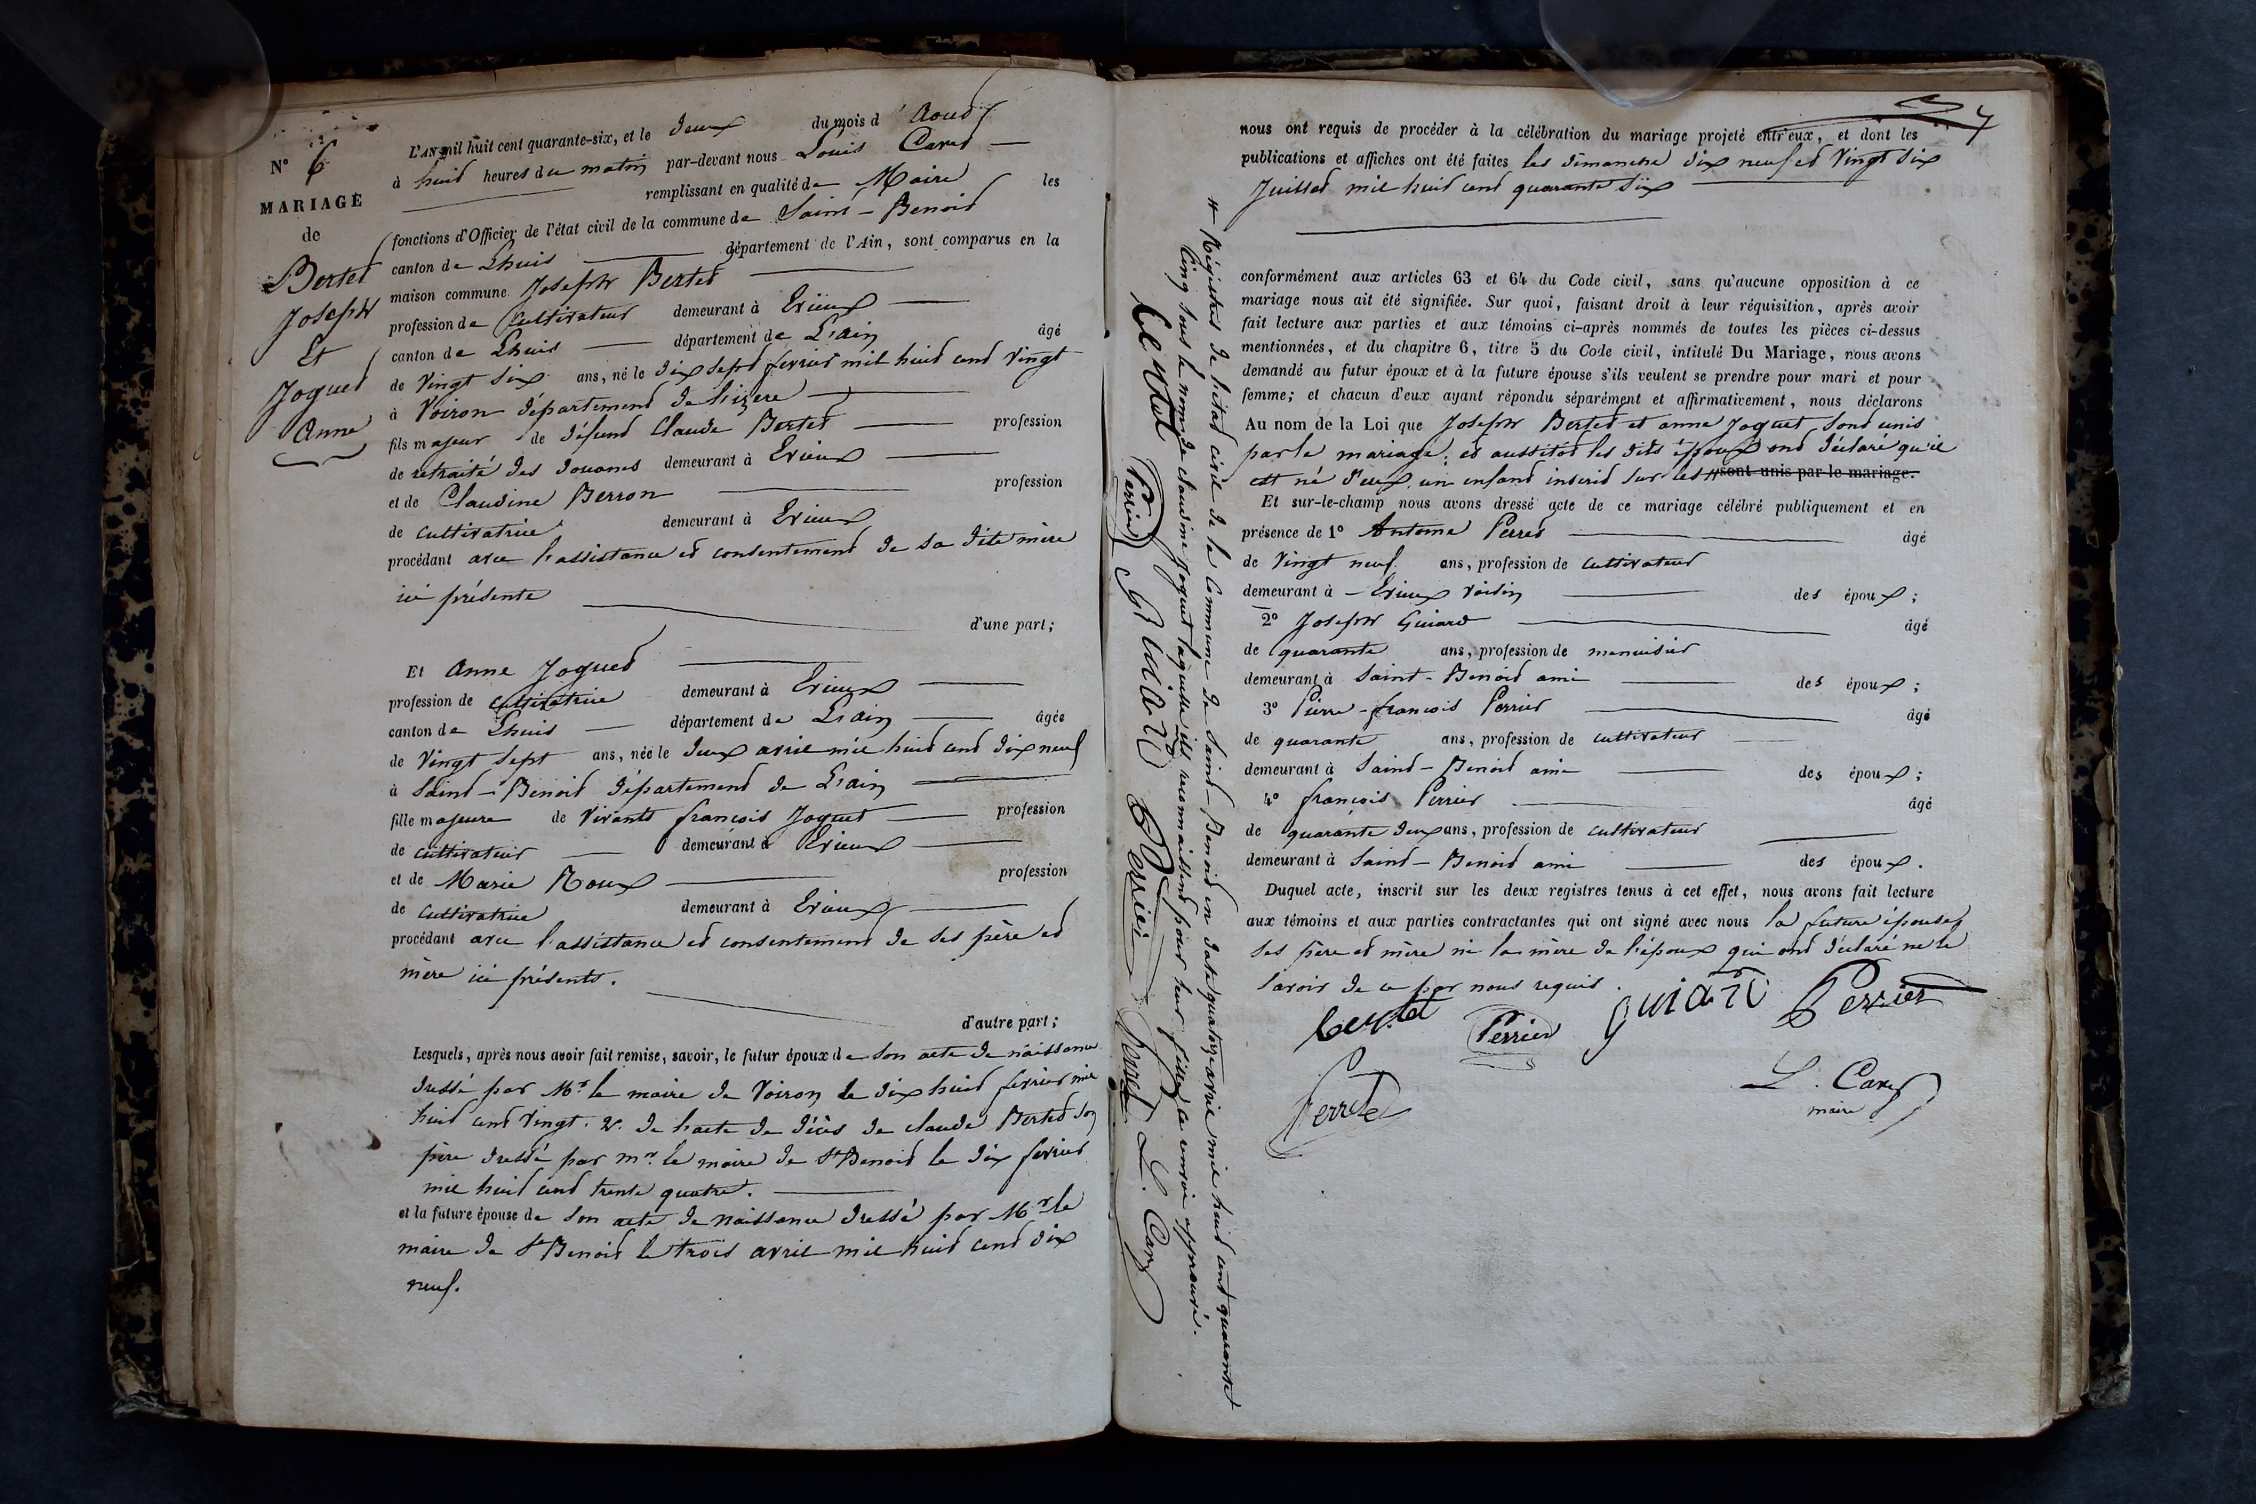 N° 6
MARIAGE
de
Bertet
Joseph
Et
Joguet
Anne
L'AN mil huit cent quarante-six, et le deux du mois d'Aout
à huit heures du matin par-devant nous Louis Caret
remplissant en qualité de Maire les
fonctions d'Officier de l'état civil de la commune de Saint-Benoit
canton de Lhuis département de l'Ain, sont comparus en la
maison commune Joseph Bertet
profession de cultivateur demeurant à Evieux
canton de Lhuis département de L'ain âgé
de vingt six ans, né le dix sept fevrier mil huit cent vingt
à Voiron département de lizere
fils majeur de défunt Claude Bertet profession
de retraité des douanes demeurant à Evieux
et de Claudine Berron profession
de cultivatrice demeurant à Evieux
procédant avec l'assistance et consentement de sa dite mère
ici présente
d'une part;
Et Anne Joguet
profession de cultivatrice demeurant à Evieux
canton de Lhuis département de L'ain âgée
de vingt sept ans, née le deux avril mil huit cent dix neuf
à Saint-Benoit département de L'ain
fille majeure de vivants françois Joguet profession
de cultivateur demeurant à Evieux
et de Marie Roux profession
de cultivatrice demeurant à Evieux
procédant avec l'assistance et consentement de ses père et
mère ici présents.
d'autre part;
Lesquels, après nous avoir fait remise, savoir, le futur époux de son acte de naissance
dressé par Mr le maire de Voiron le dix huit fevrier mil
huit cent vingt. 2°. de l'acte de décès de claude Bertet son
père dressé par mr. le maire de St Benoit le dix fevrier
mil huit cent trente quatre.
et la future épouse de son acte de naissance dressé par Mr le
maire de St Benoit le trois avril mil huit cent dix
neuf.
7
nous ont requis de procéder à la célébration du mariage projeté entr'eux, et dont les
publications et affiches ont été faites les dimanche dix neuf et vingt six
Juillet mil huit cent quarante six
conformément aux articles 63 et 64 du Code civil, sans qu'aucune opposition à ce
mariage nous ait été signifiée. Sur quoi, faisant droit à leur réquisition, après avoir
fait lecture aux parties et aux témoins ci-après nommés de toutes les pièces ci-dessus
mentionnées, et du chapitre 6, titre 5 du Code civil, intitulé Du Mariage, nous avons
demandé au futur époux et à la future épouse s'ils veulent se prendre pour mari et pour
femme; et chacun d'eux ayant répondu séparément et affirmativement, nous déclarons
Au nom de la Loi que Joseph Bertet et anne Joguet sont unis
par le mariage; et aussitôt les dits époux ont déclaré qu'il
est né d'eux un enfant inscrit sur les # sont unis par le mariage.
Et sur-le-champ nous avons dressé acte de ce mariage célébré publiquement et en
présence de 1° Antoine Perret âgé
de vingt neuf ans, profession de cultivateur
demeurant à Evieux voisin des époux;
2° Joseph Guiard âgé
de quarante ans, profession de menuisier
demeurant à Saint-Benoit ami des époux;
3° Pierre-françois Perrier âgé
de quarante ans, profession de cultivateur
demeurant à Saint-Benoit ami des époux;
4° françois Perrier âgé
de quarante deux ans, profession de cultivateur
demeurant à Saint-Benoit ami des époux.
Duquel acte, inscrit sur les deux registres tenus à cet effet, nous avons fait lecture
aux témoins et aux parties contractantes qui ont signé avec nous la future épouse
ses père et mère ni la mère de l'époux qui ont déclaré ne le
savoir de ce par nous requis.
bertet Perrier guiard Perrier
Perret L. Caret
maire
# Régistres de l'état civil de la Commune de Saint-Benoit en date quatorze avril mil huit cent quarante
cinq sous le nom de claudine Joguet laquelle ils reconnaissent pour leur fille, ce renvoi approuvé.
bertet Perrier Guiard Perrier Perret L. Caret